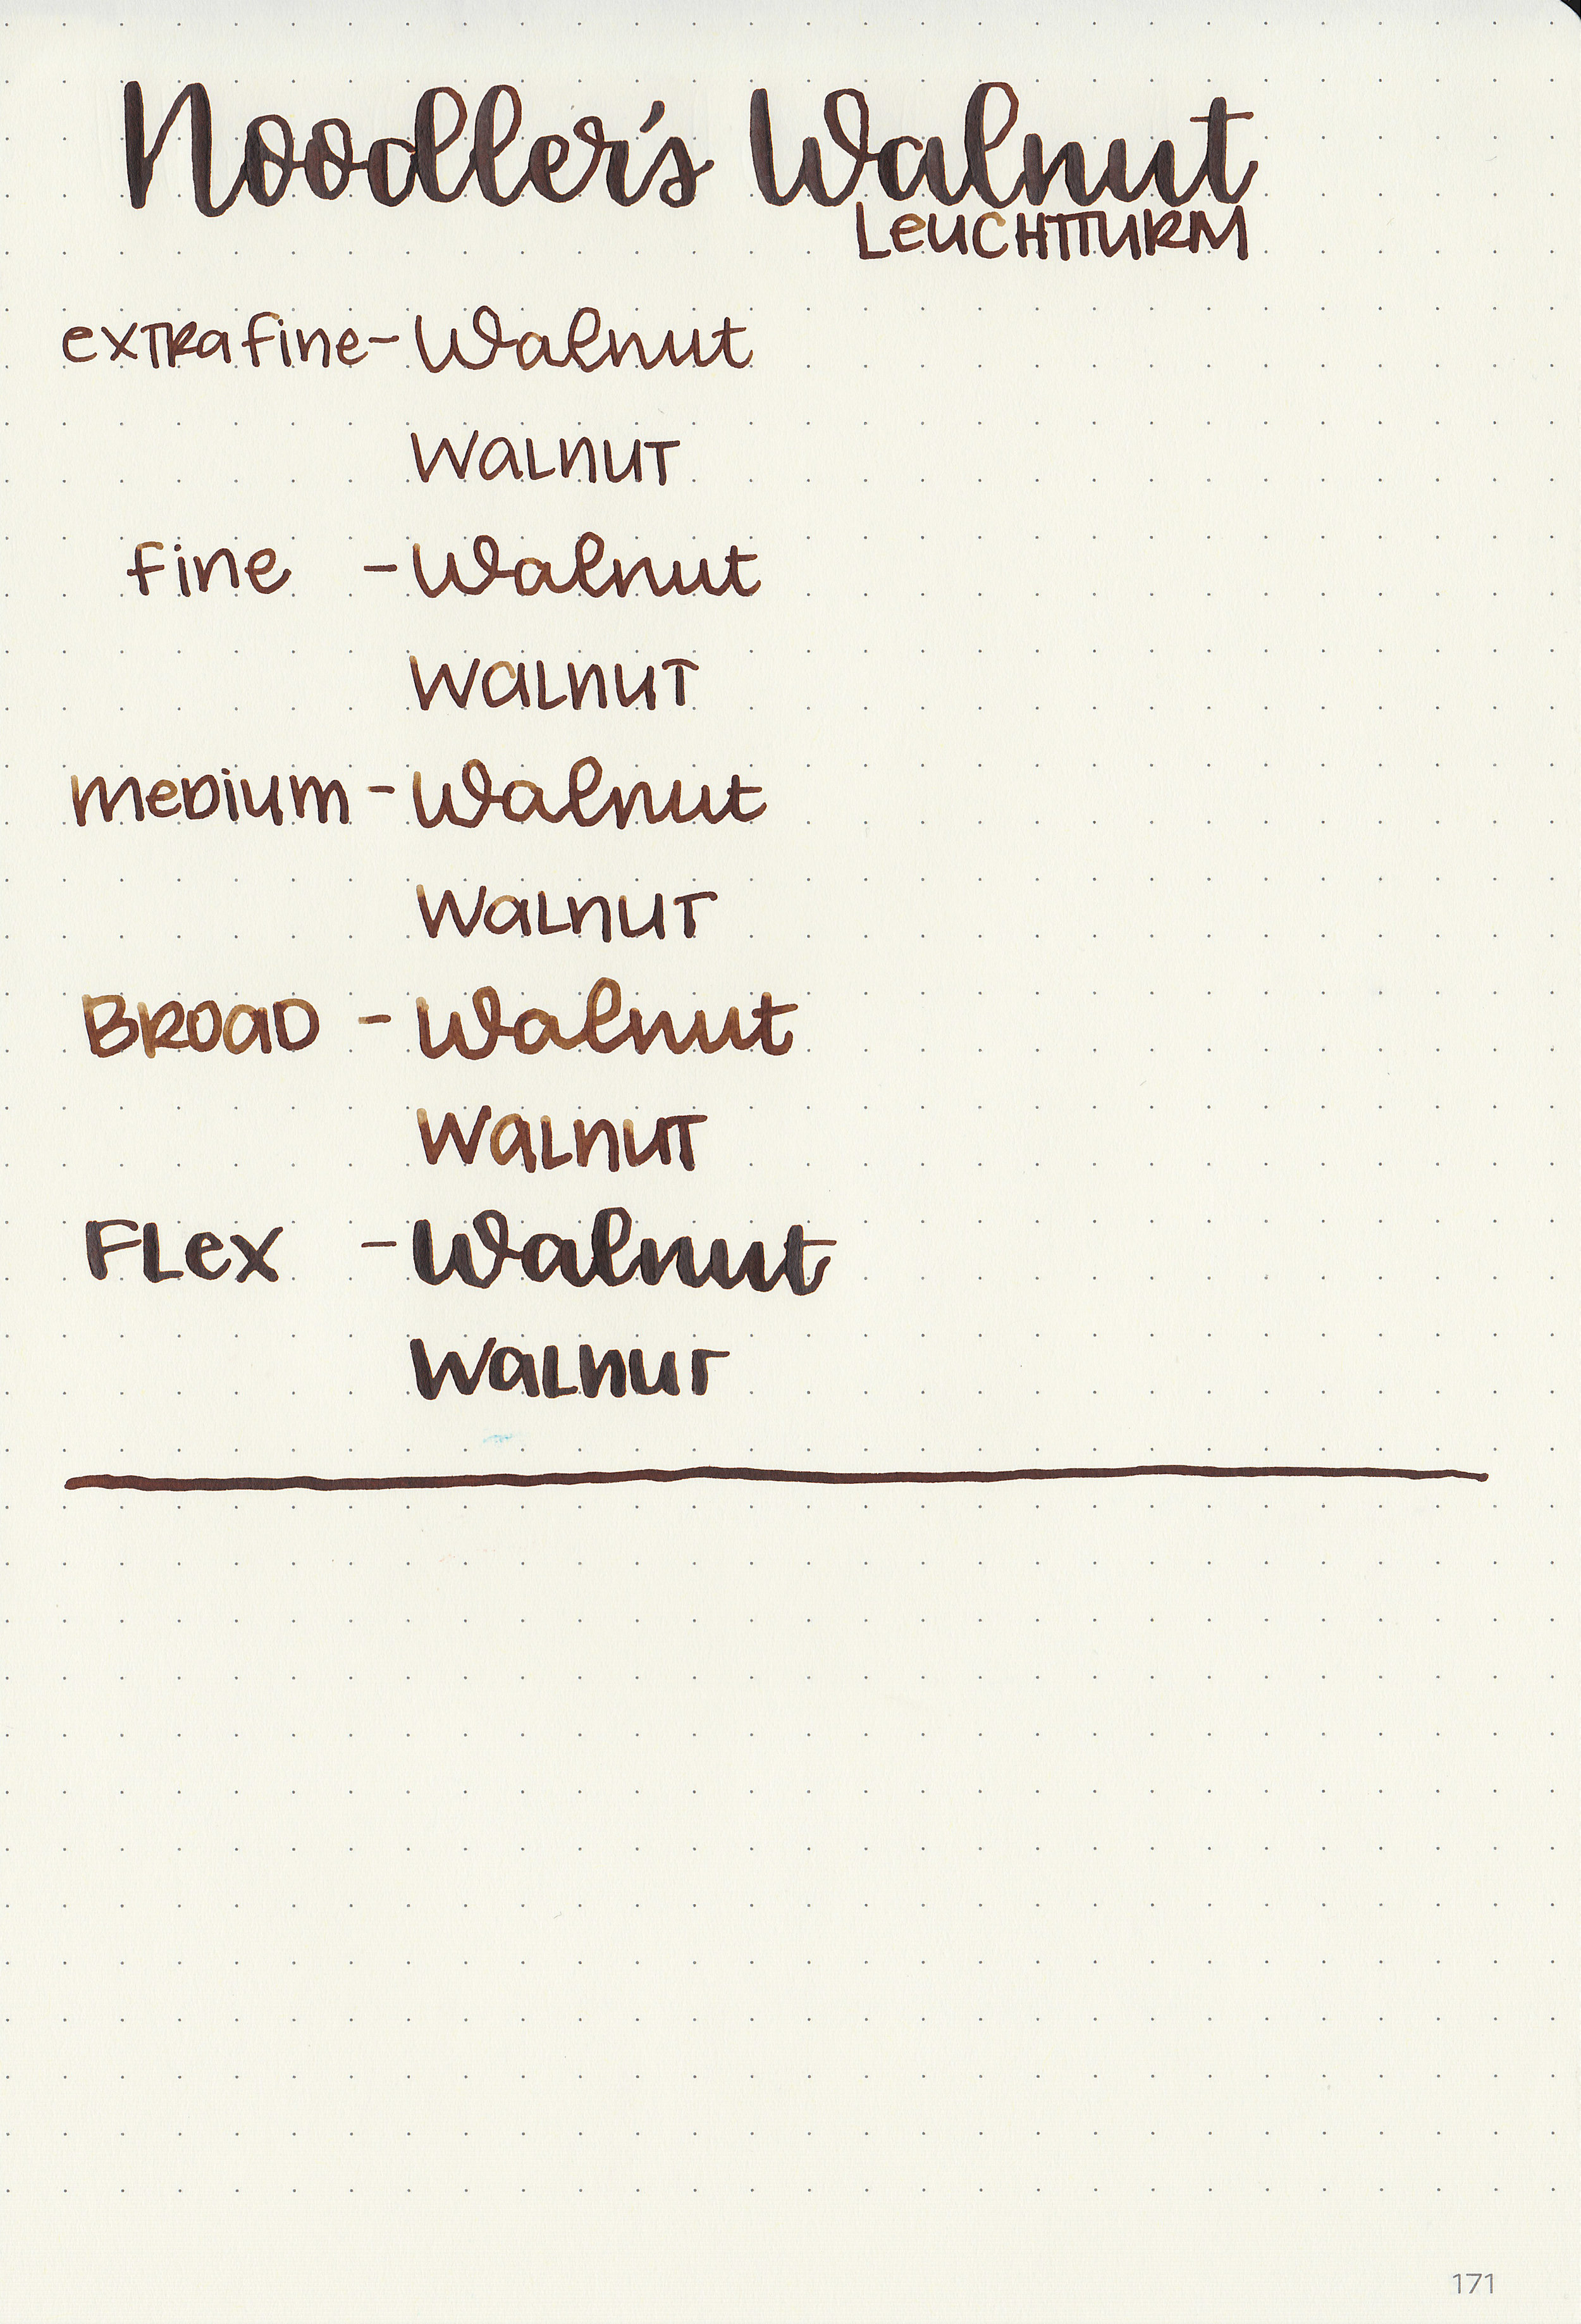 Noodler's Walnut
LeUCHTTURM
exTRafine - Walnut
WaLnUT
fine - Walnut
WaLnUT
meDiUm - Walnut
WaLnUT
BROaD - Walnut
WaLnUT
FLex - Walnut
WaLnUT
171